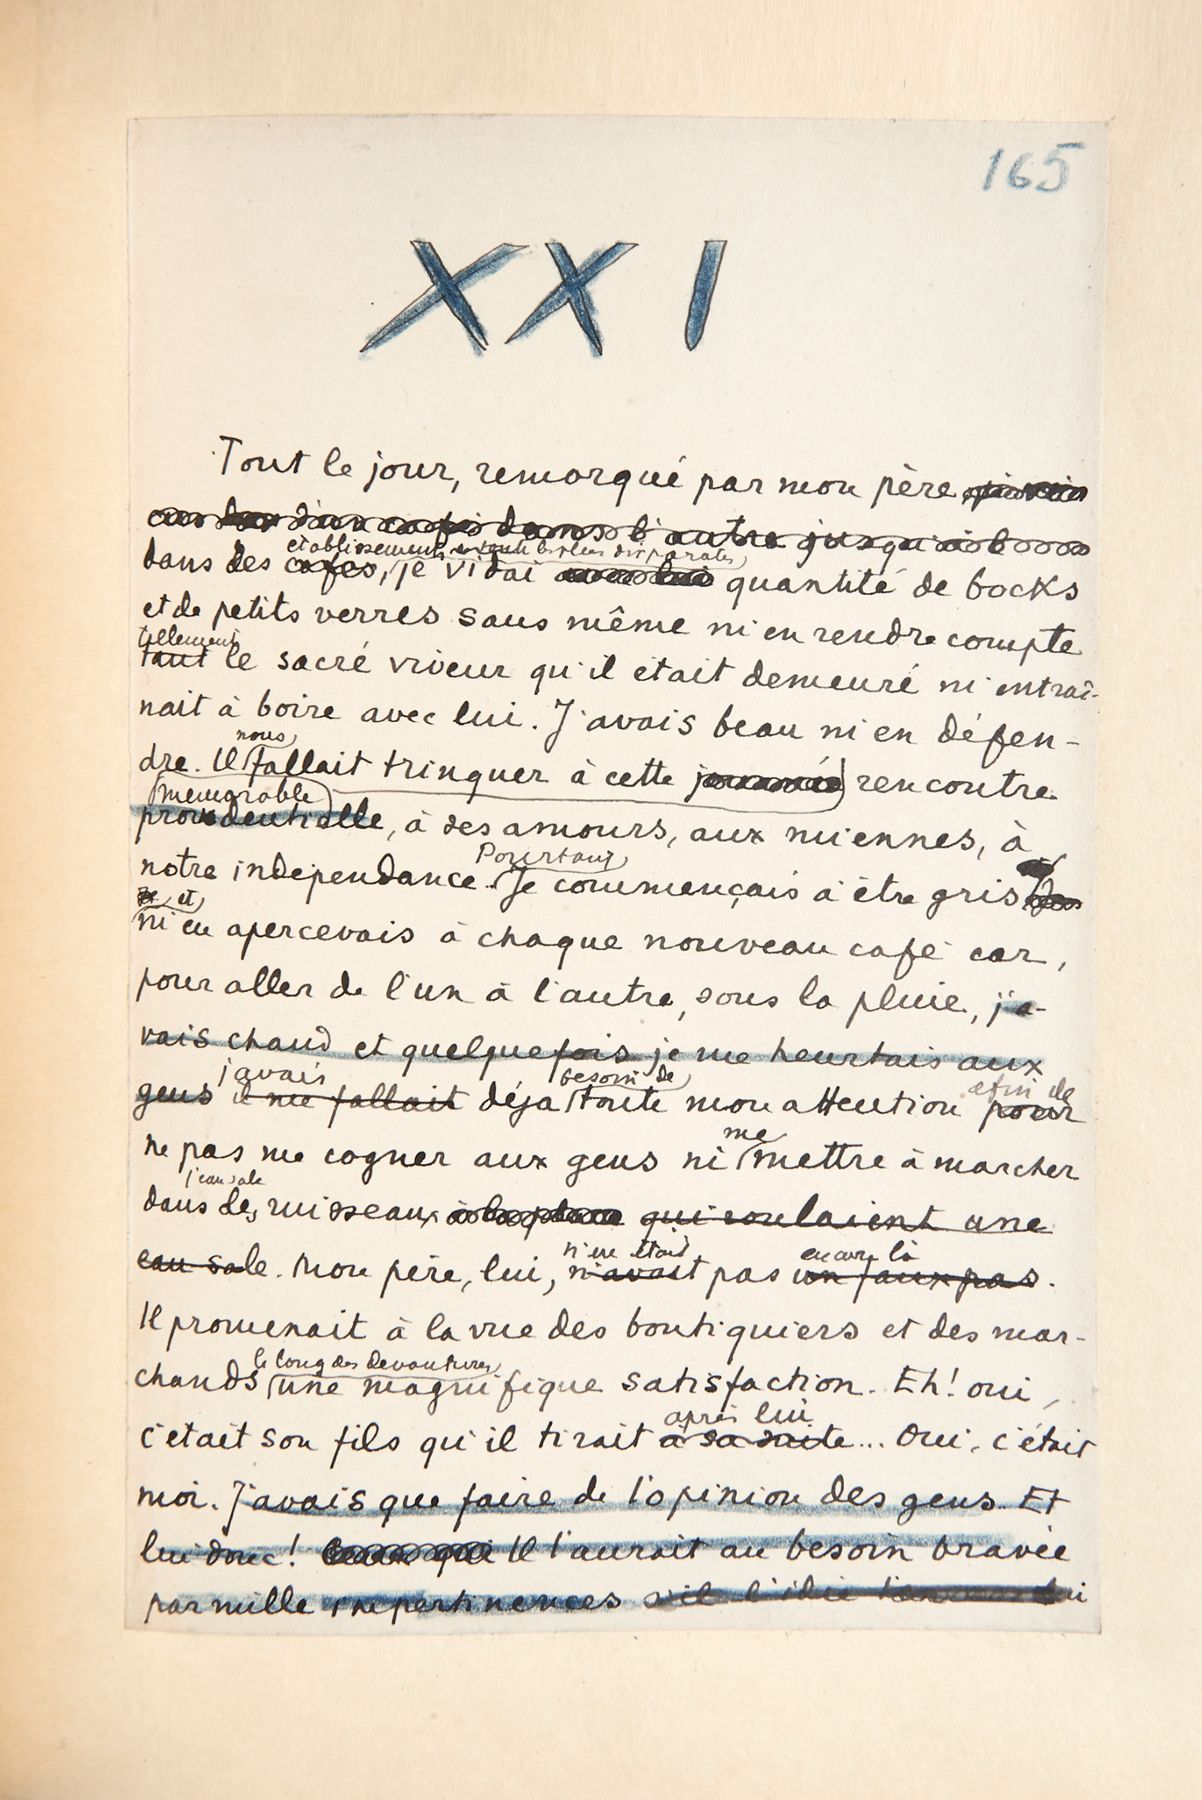 165
XXI
Tout le jour, remorqué par mon père
d'un café dans l'autre jusqu'à
établissements les plus disparates
dans des cafés, je vidai avec lui quantité de bocks
et de petits verres sans même m'en rendre compte
tellement
tant le sacré viveur qu'il était demeuré m'entraî-
nait à boire avec lui. J'avais beau m'en défen-
nous
dre. Il fallait trinquer à cette journée rencontre
memorable
providentielle, à ses amours, aux miennes, à
Pourtant
notre indépendance. Je commençais à être gris
et
m'en apercevais à chaque nouveau café car,
pour aller de l'un à l'autre, sous la pluie, j'a-
vais chaud et quelquefois je me heurtais aux
j'avais besoin de afin de
gens il me fallait déjà toute mon attention pour
me
ne pas me cogner aux gens ni mettre à marcher
l'eau sale
dans des ruisseaux qui roulaient une
n'en était encore là
eau sale. Mon père, lui, n'avait pas un faux pas.
Il promenait à la vue des boutiquiers et des mar-
le long des devantures
chands une magnifique satisfaction. Eh! oui,
après lui
c'était son fils qu'il tirait à sa suite... Oui, c'était
moi. J'avais que faire de l'opinion des gens. Et
lui donc! Il l'aurait au besoin bravée
par mille impertinences s'il l'idée lui